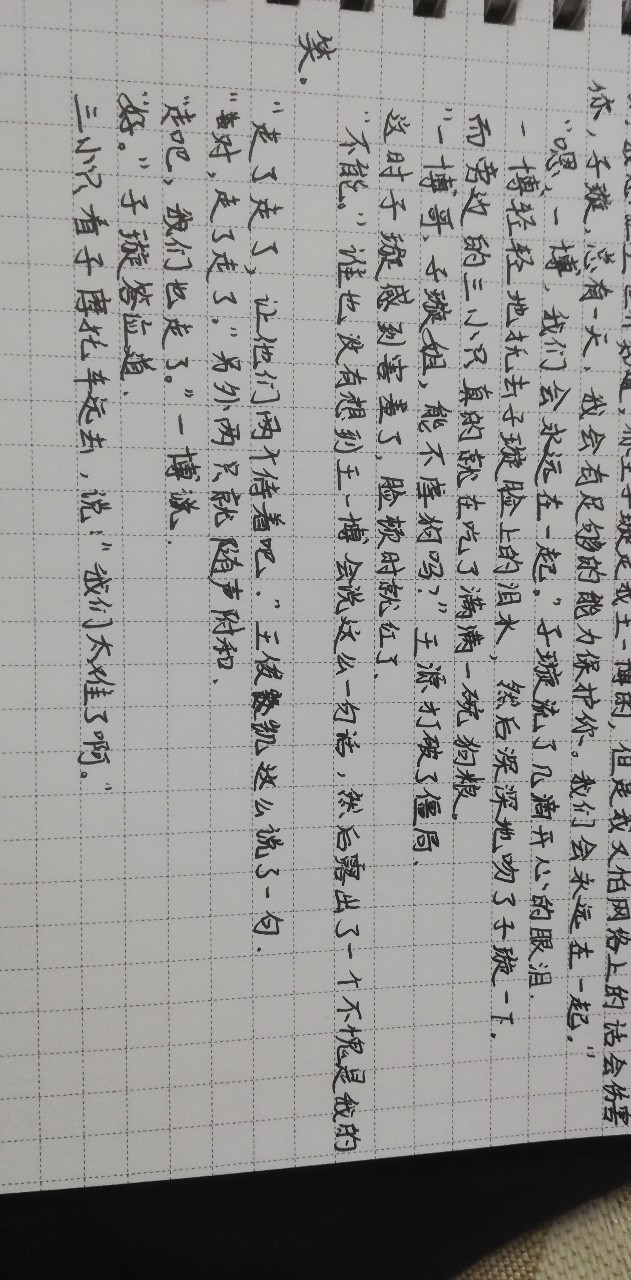 你王子璇是我王一博的，但是我又怕网络上的话会伤害
你，子璇，总有一天，我会有足够的能力保护你。我们会永远在一起。”
“嗯，一博，我们会永远在一起。”子璇流了几滴开心的眼泪.
一博轻轻地抚去子璇脸上的泪水，然后深深地吻了子璇一下.
而旁边的三小只真的就在吃了满满一碗狗粮。
“一博哥，子璇姐，能不虐狗吗？”王源打破了僵局.
这时子璇感到害羞了，脸顿时就红了.
“不能。”谁也没有想到王一博会说这么一句话，然后露出了一个不愧是我的
笑.
“走了走了，让他们两个待着吧.”王俊凯这么说了一句.
“对，走了走了.”另外两只就随声附和.
“走吧，我们也走了。”一博说.
“好。”子璇答应道.
三小只看子摩托车远去，说：“我们太难了啊。”